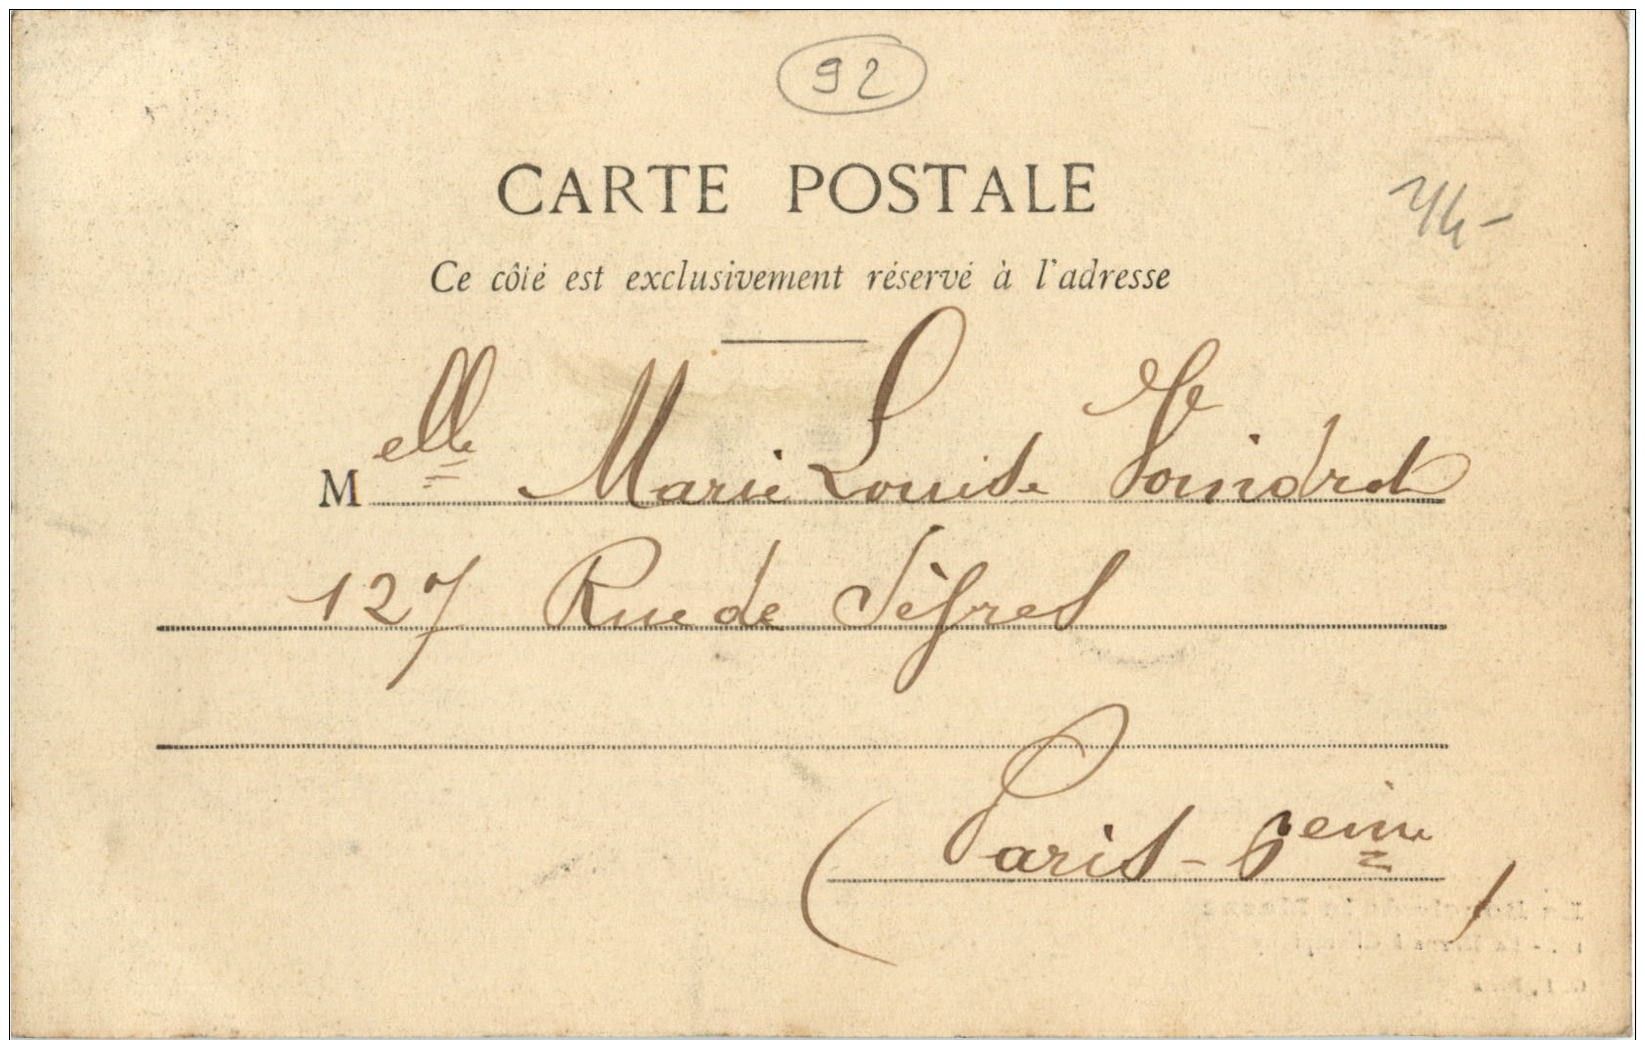 92
CARTE POSTALE
Ce côté est exclusivement réservé à l'adresse
Melle Marie Louise
127 Rue de Sèfres
(Paris - 6eime)